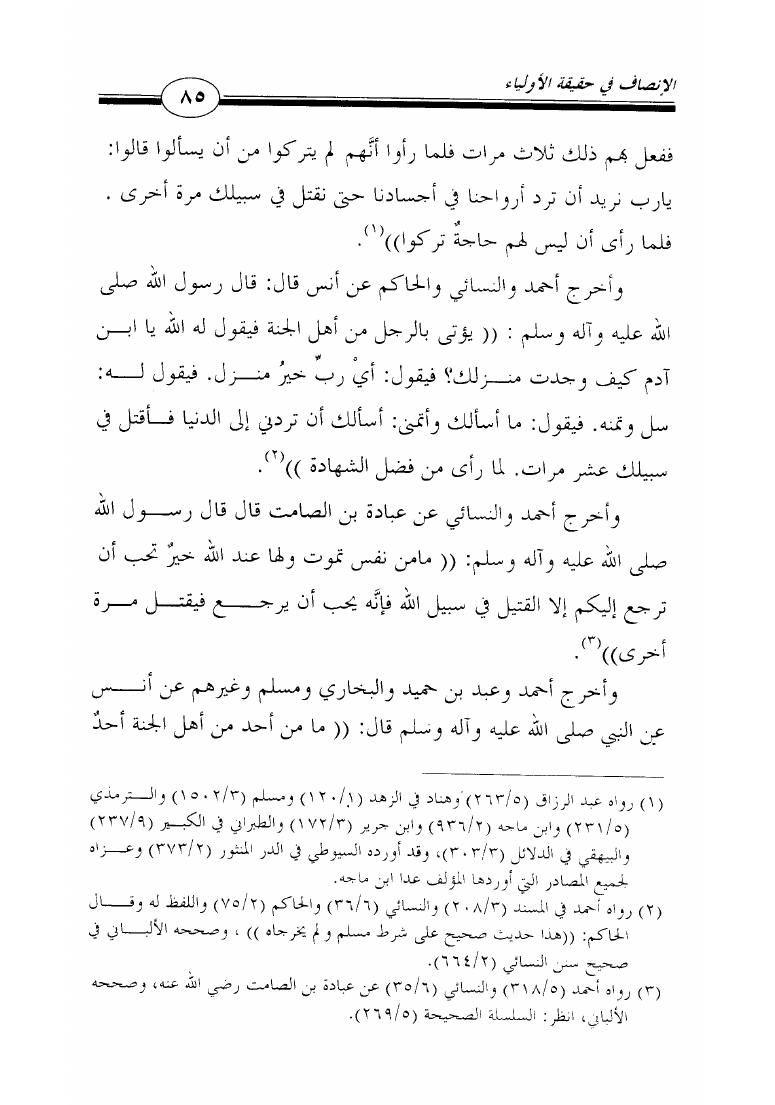 الإنصاف في حقيقة الأولياء
٨٥
ففعل بهم ذلك ثلاث مرات فلما رأوا أنَّهم لم يتركوا من أن يسألوا قالوا:
يارب نريد أن ترد أرواحنا في أجسادنا حتى نقتل في سبيلك مرة أخرى .
فلما رأى أن ليس لهم حاجةٌ تركوا))(١).
وأخرج أحمد والنسائي والحاكم عن أنس قال: قال رسول الله صلى
الله عليه وآله وسلم : (( يؤتى بالرجل من أهل الجنة فيقول له الله يا ابــن
آدم كيف وجدت منــزلك؟ فيقول: أيْ ربِّ خيرُ منــزل. فيقول لــه:
سل وتمنه. فيقول: ما أسألك وأتمنى: أسألك أن تردني إلى الدنيا فــأقتل في
سبيلك عشر مرات. لما رأى من فضل الشهادة ))(٢).
وأخرج أحمد والنسائي عن عبادة بن الصامت قال قال رســول الله
صلى الله عليه وآله وسلم: (( مامن نفس تموت ولها عند الله خيرٌ تحب أن
ترجع إليكم إلا القتيل في سبيل الله فإنَّه يحب أن يرجــع فيقتــل مــرة
أخرى))(٣).
وأخرج أحمد وعبد بن حميد والبخاري ومسلم وغيرهم عن أنــس
عن النبي صلى الله عليه وآله وسلم قال: (( ما من أحد من أهل الجنة أحدٌ
(١) رواه عبد الرزاق (٢٦٣/٥) وهناد في الزهد (١٢٠/١) ومسلم (١٥٠٢/٣) والــترمذي
(٢٣١/٥) وابن ماجه (٩٣٦/٢) وابن جرير (١٧٢/٣) والطبراني في الكبــير (٢٣٧/٩)
والبيهقي في الدلائل (٣٠٣/٣)، وقد أورده السيوطي في الدر المنثور (٣٧٣/٢) وعــزاه
لجميع المصادر التي أوردها المؤلف عدا ابن ماجه.
(٢) رواه أحمد في المسند (٢٠٨/٣) والنسائي (٣٦/٦) والحاكم (٧٥/٢) واللفظ له وقــال
الحاكم: ((هذا حديث صحيح على شرط مسلم ولم يخرجاه )) ، وصححه الألبــاني في
صحيح سنن النسائي (٦٦٤/٢).
(٣) رواه أحمد (٣١٨/٥) والنسائي (٣٥/٦) عن عبادة بن الصامت رضي الله عنه، وصححه
الألباني، انظر: السلسلة الصحيحة (٢٦٩/٥).